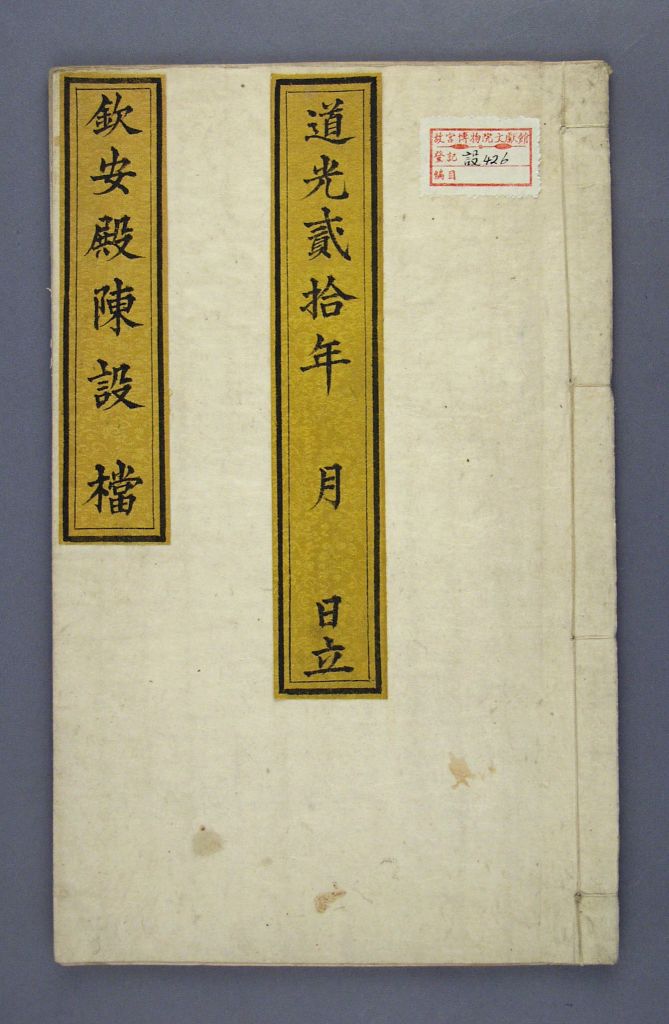 故宮博物院文獻館
登記
設426
編目
道光貳拾年 月 日立
欽安殿陳設檔